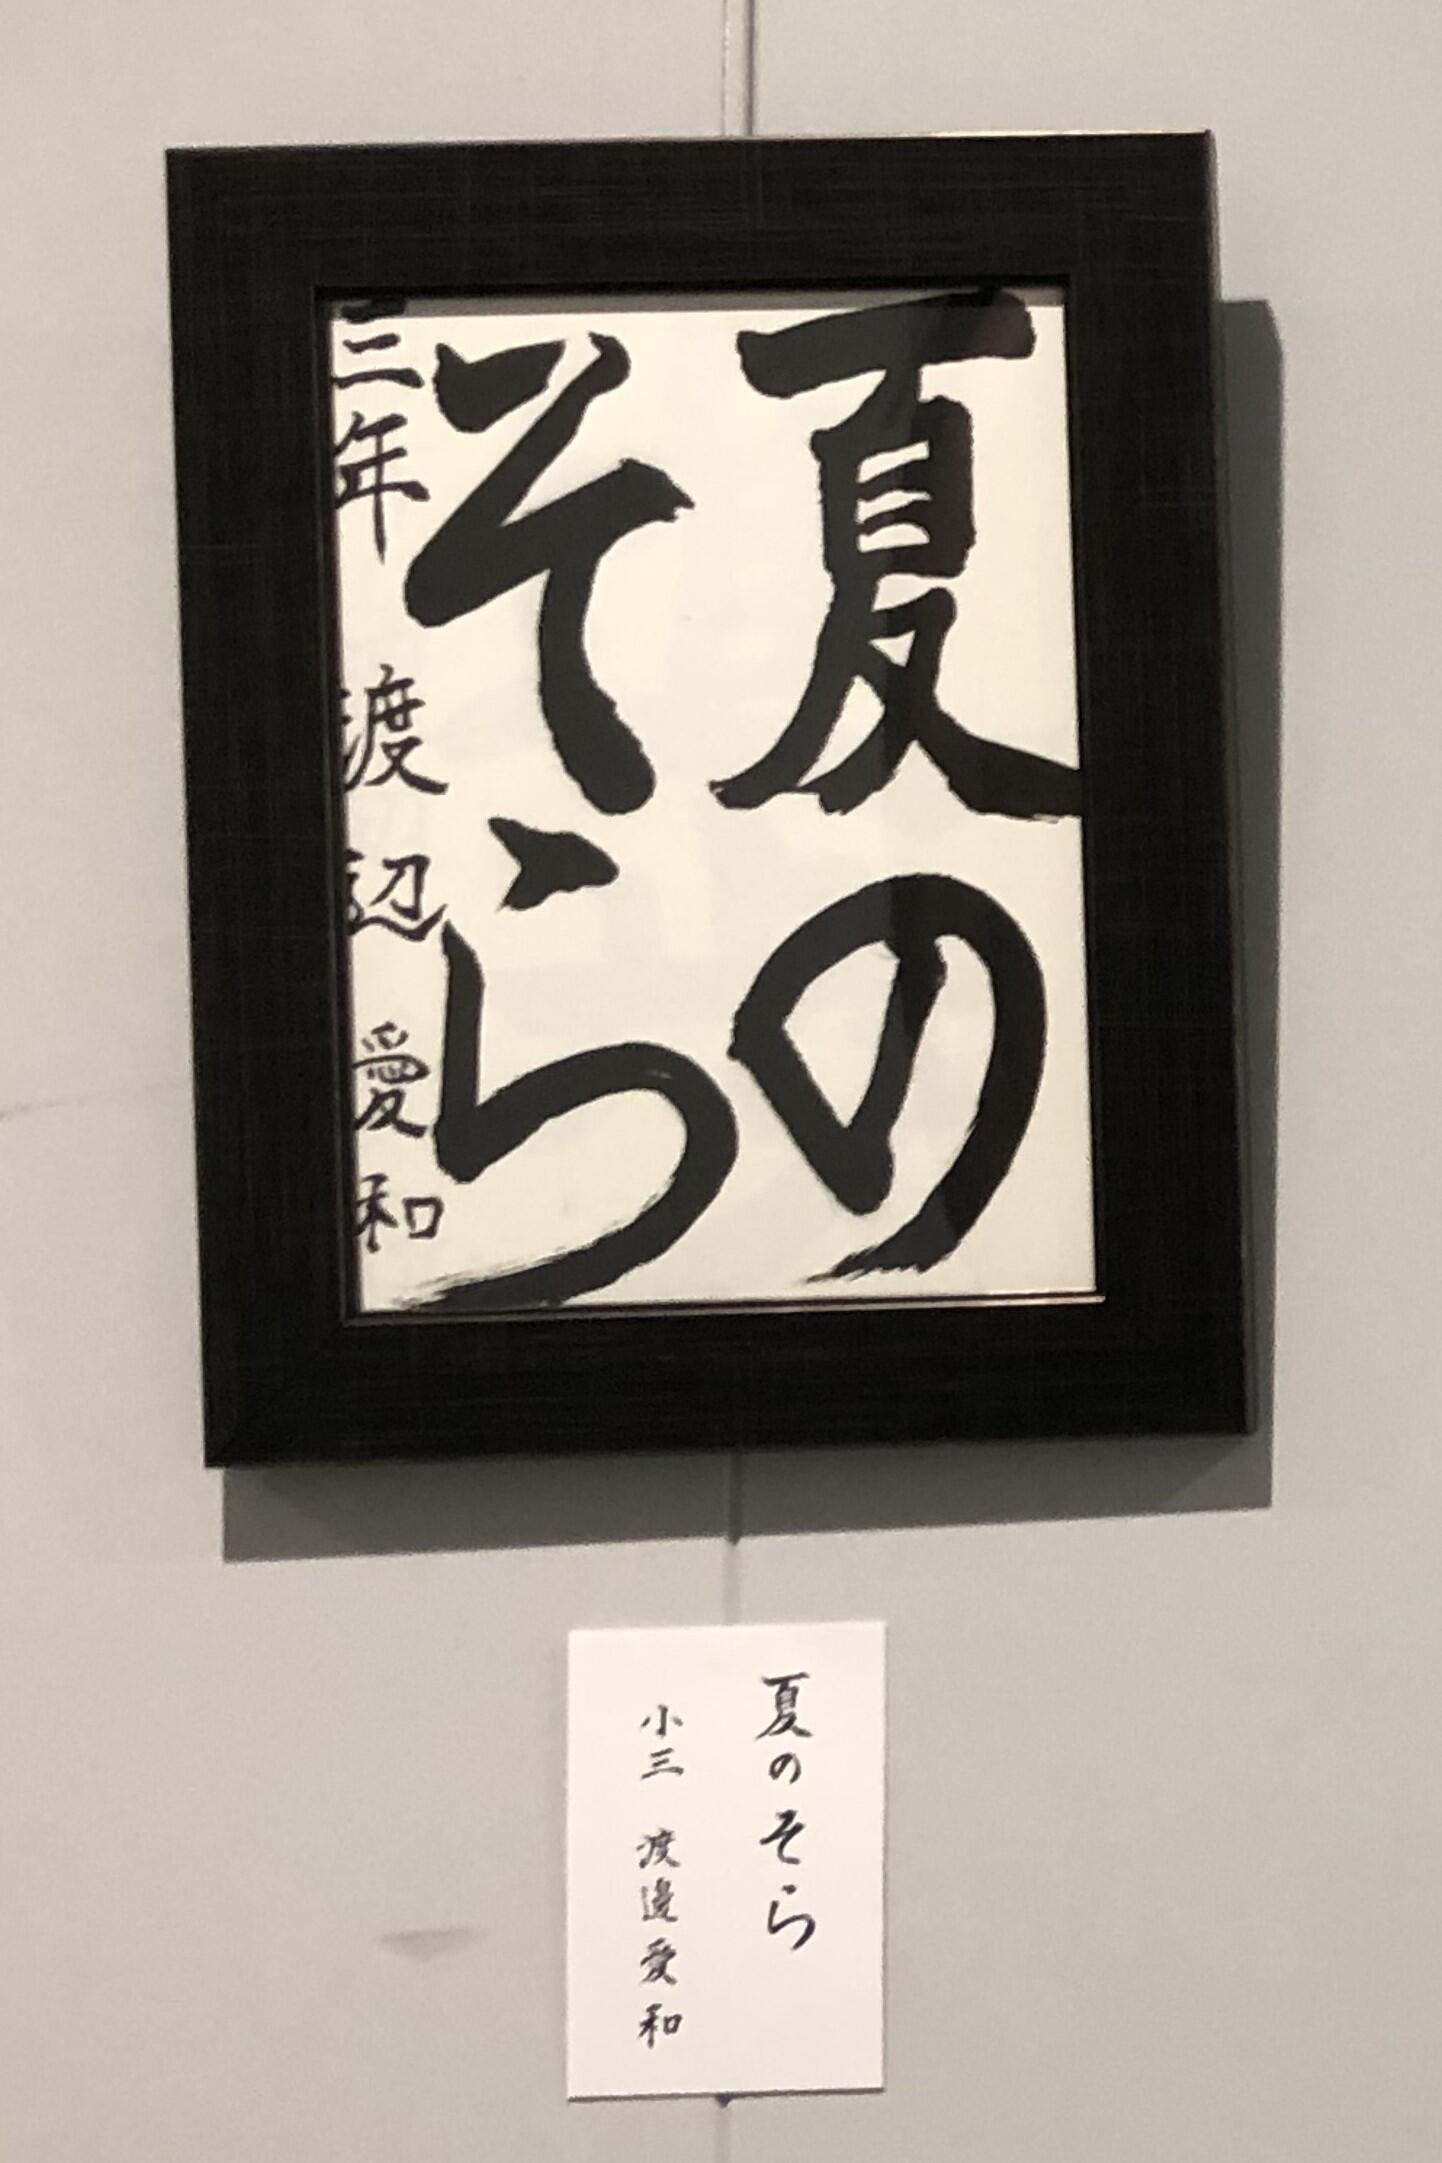 夏の
そら
三年 渡辺 愛和
夏のそら
小三 渡邉愛和